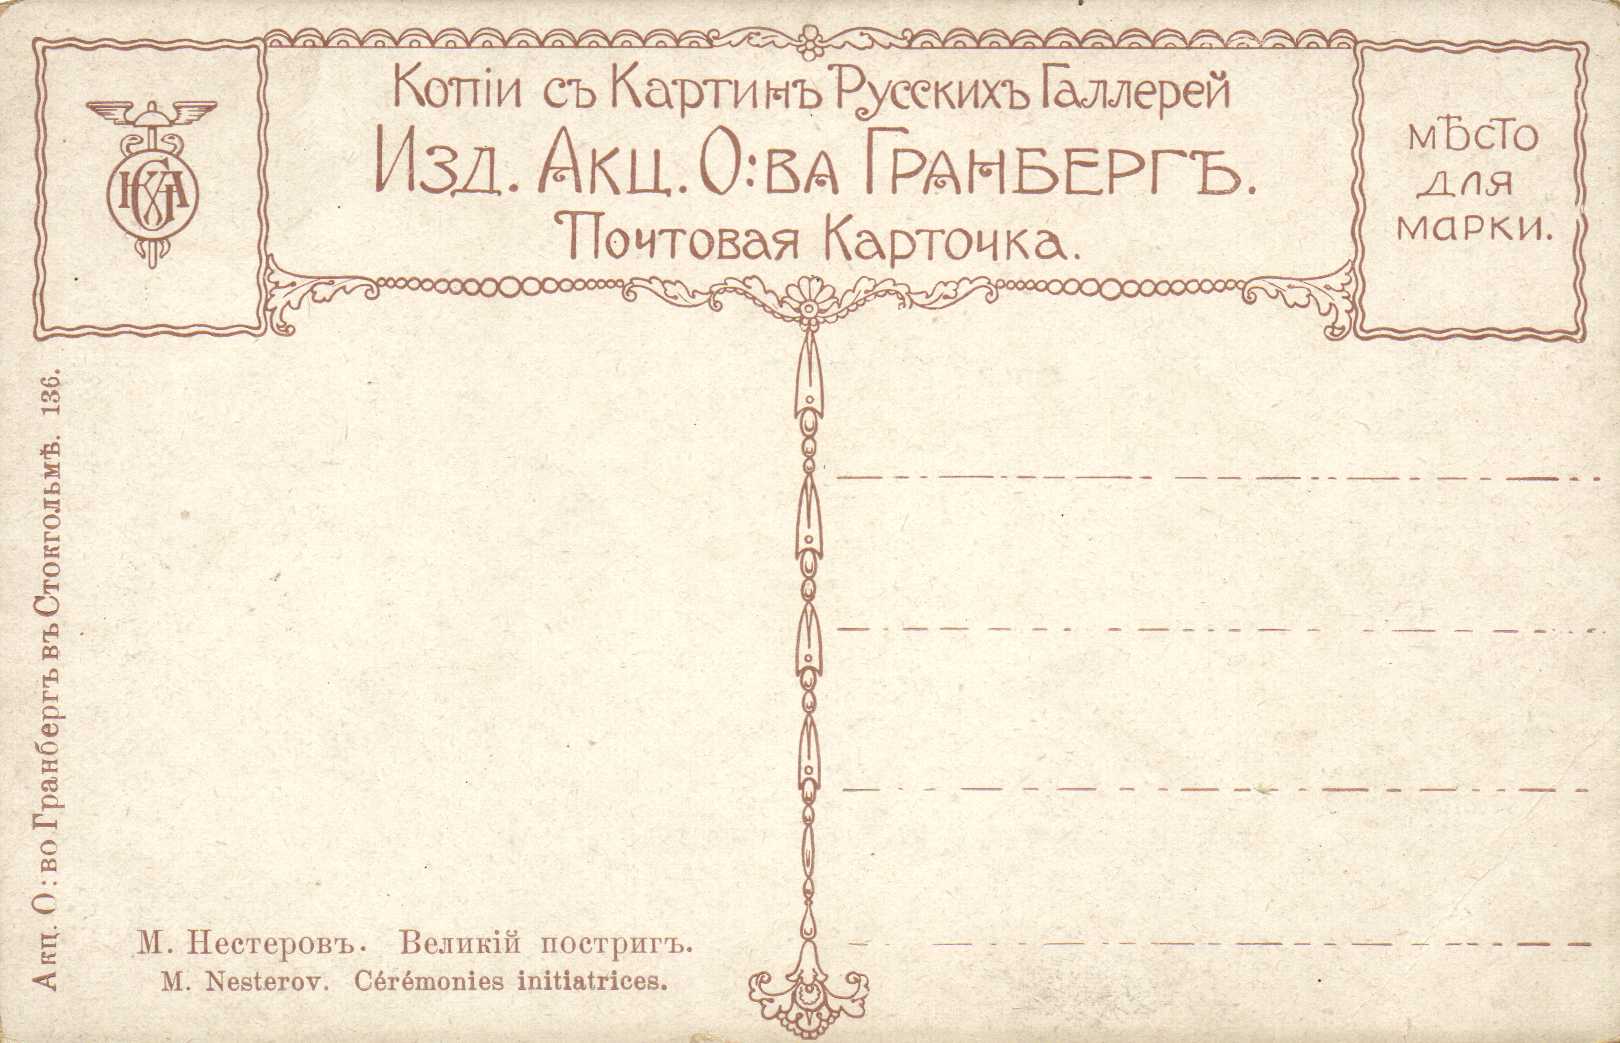 Копіи съ Картинъ Русскихъ Галлерей
Изд. Акц. О:ва Гранбергъ.
Почтовая Карточка.
мѣсто
для
марки.
Акц. О:во Гранбергъ въ Стокгольмѣ. 136.
М. Нестеровъ. Великій постригъ.
M. Nesterov. Cérémonies initiatrices.